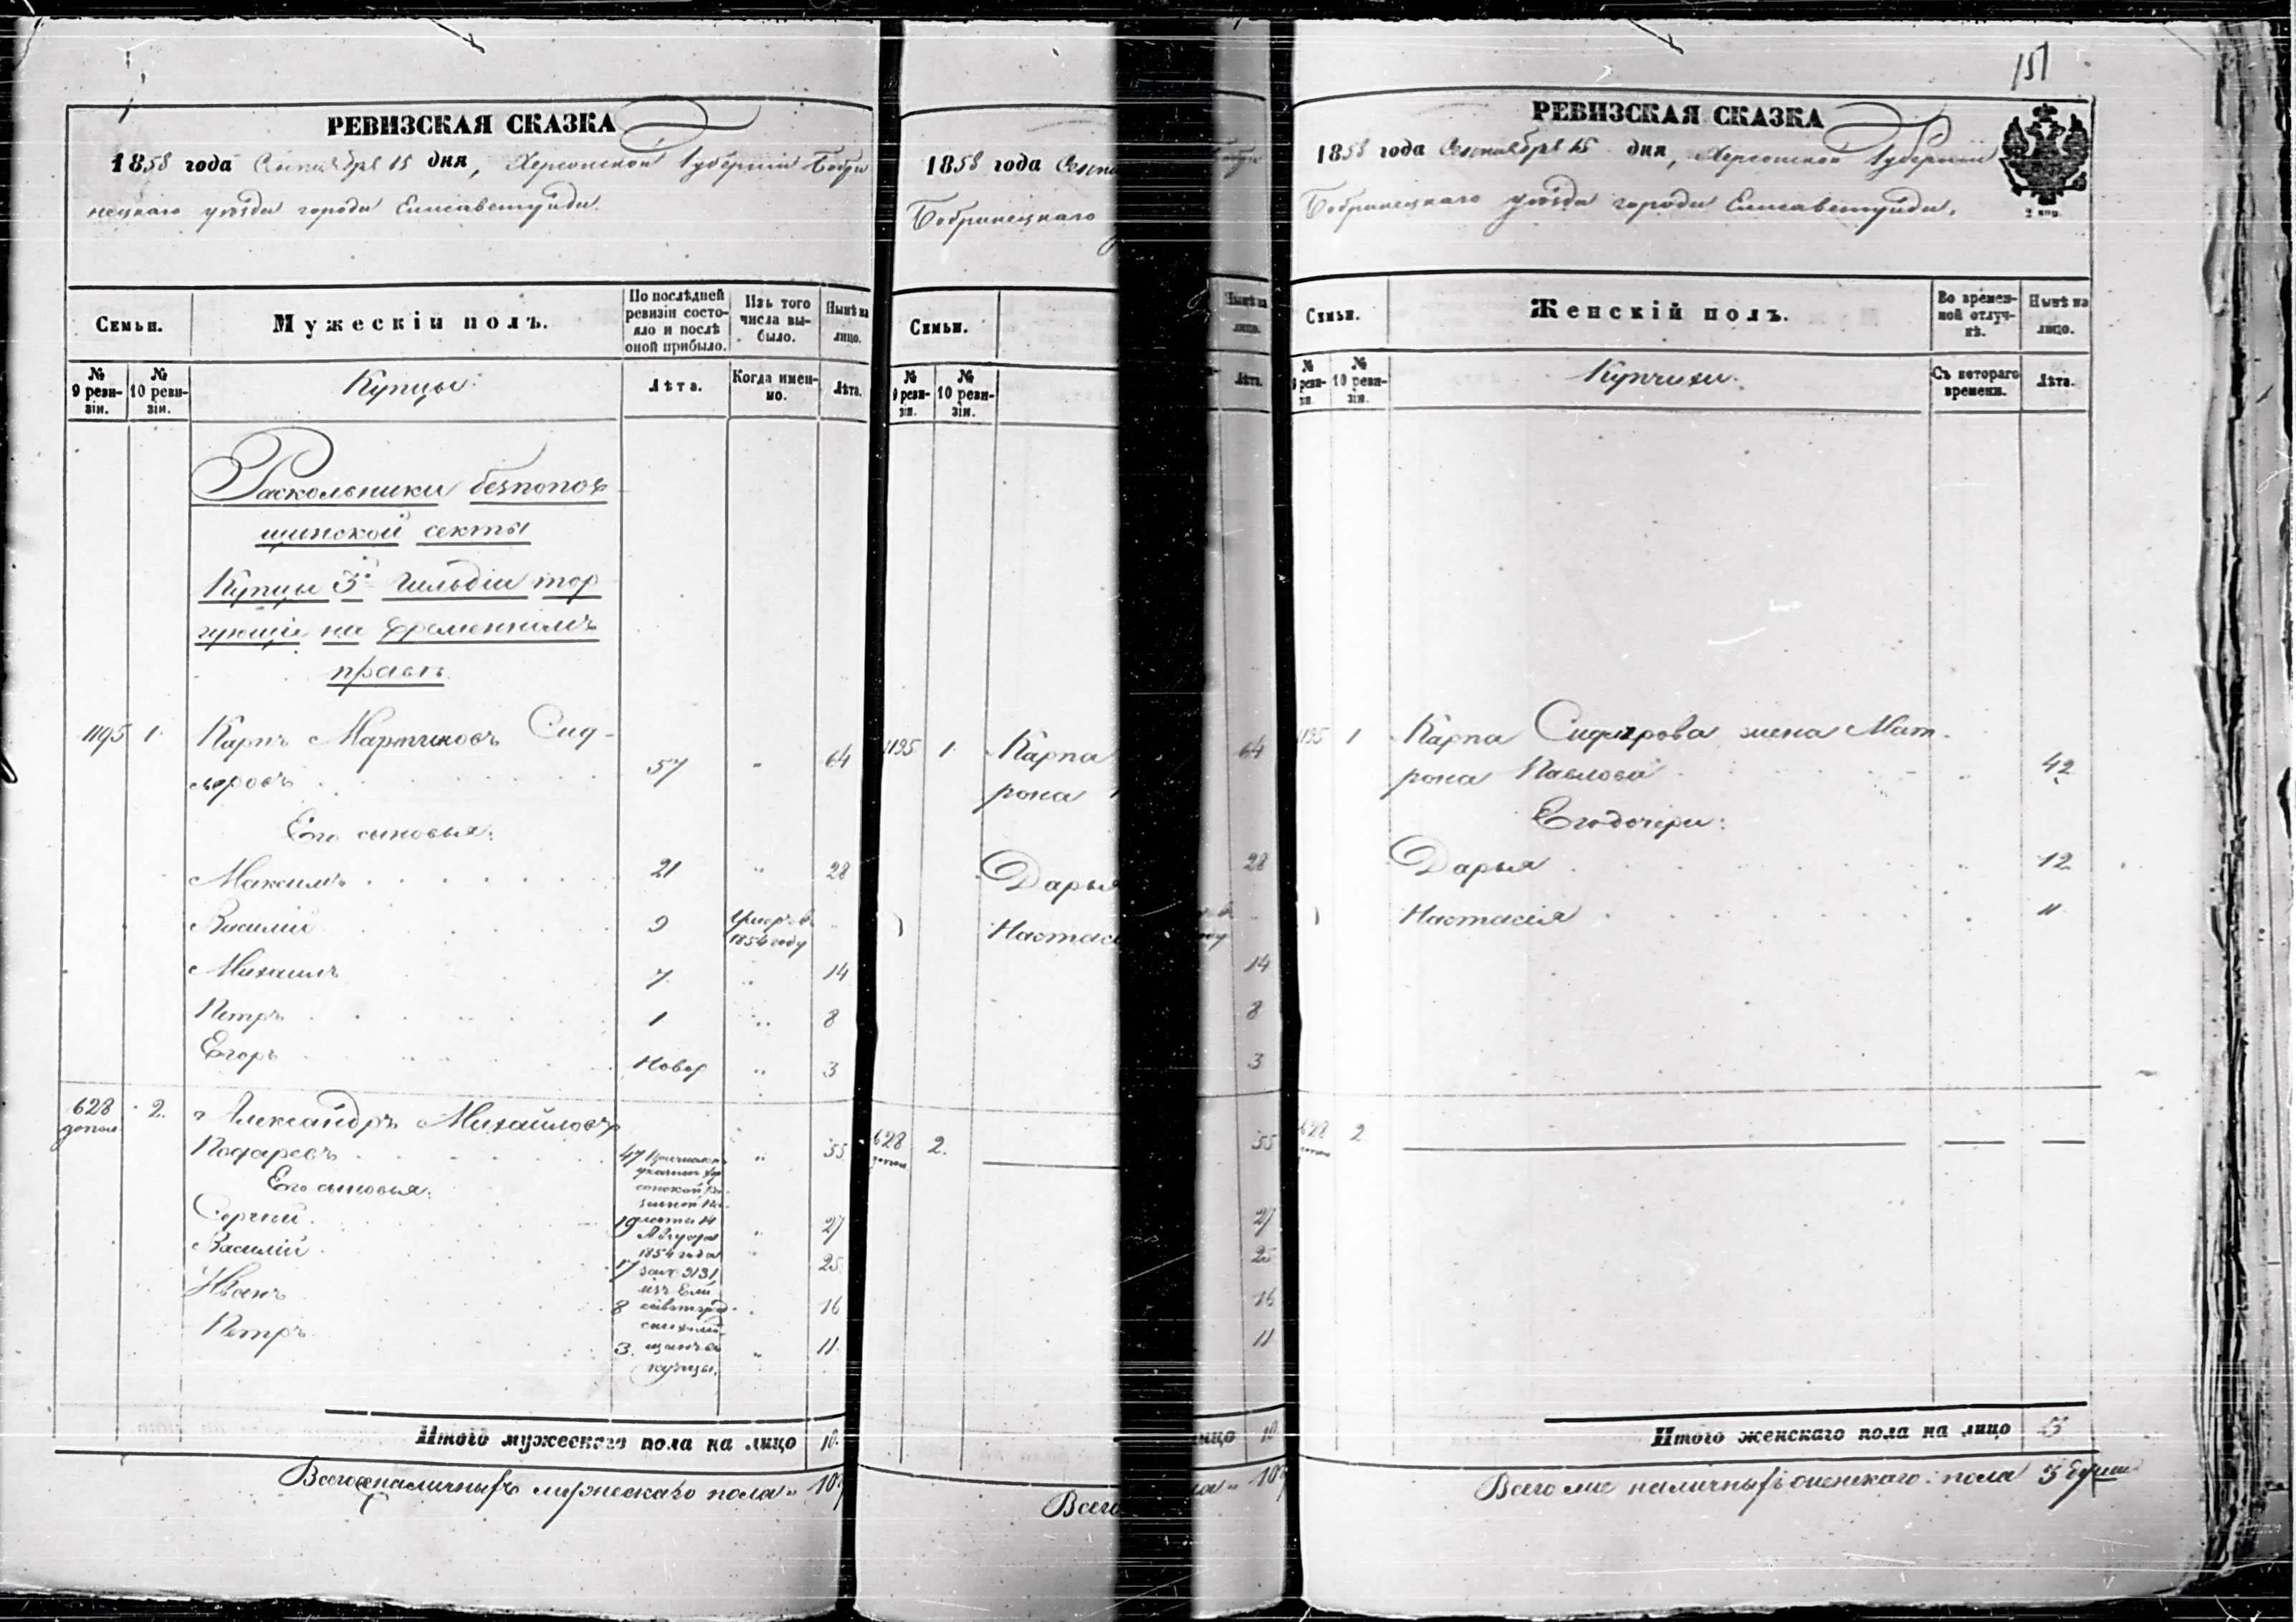 151
РЕВИЗСКАЯ СКАЗКА
1858 года Сентября 15 дня, Херсонской Губерніи Бобри
нецкаго уѣзда города Елисаветграда.
Семьи.
Мужескій полъ.
По послѣдней ревизіи состо-
яло и послѣ оной прибыло.
Изъ того числа вы-
было.
Нынѣ на лицо.
№ 9 реви-
зіи.
№ 10 реви-
зіи.
Купцы.
Лѣта.
Когда имен-
но.
Лѣта.
Раскольники безпопов
щинской секты
Купцы 3й Гильдіи тор
гующіе на временномъ
правѣ
1195 1. Карпъ Мартиновъ Сид-
оровъ 57 " 64
Его сыновья:
Максимъ 21 " 28
Василій 9 Умеръ въ
1854 году
Михаилъ 7 " 14
Петръ 1 " 8
Егоръ Новор " 3
628 2. Александръ Михайловъ
допол
47 " 55
Его сыновья:
Сергѣй 19 " 27
Василій 17 " 25
Иванъ 8 " 16
Петръ 3 " 11
Причислен
указомъ Хер
сонской Ка-
зенной Па-
латы 14
Августа
1854 года
за № 3131
изъ Ели
саветград
скихъ мѣ
щанъ въ
купцы.
Итого мужескаго пола на лицо 10.
Всего наличныхъ мужескаго пола 10
1858 года Сентя
Бобринецкаго
Семьи.
№ 9 реви-
зіи.
№ 10 реви-
зіи.
1195 1. Карпа
рона
Дарья
Настасі
628 2.
допол
Всего
Нынѣ на
лицо.
Лѣта.
64
28
14
8
3
55
27
25
16
11
лицо 10
10
РЕВИЗСКАЯ СКАЗКА
1858 года Сентября 15 дня, Херсонской Губерніи
Бобринецкаго уѣзда города Елисаветграда.
Семьи.
Женскій полъ.
Во времен-
ной отлуч-
кѣ.
Нынѣ на
лицо.
№ 9 реви-
зіи.
№ 10 реви-
зіи.
Купчихи.
Съ котораго
времени.
Лѣта.
1195 1 Карпа Сидорова жена Мат-
рона Павлова " 42
Его дочери:
Дарья " 12
Настасія " 11
628 2
допол
Итого женскаго пола на лицо 3
Всего наличныхъ женскаго пола 3 души